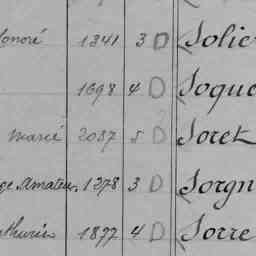 onoré 1341 3 D Solie
1698 4 D Soque
Marié 2037 5 D Soret
ge Amateur. 1378 3 D Sorgn
thurin 1877 4 D Sorre